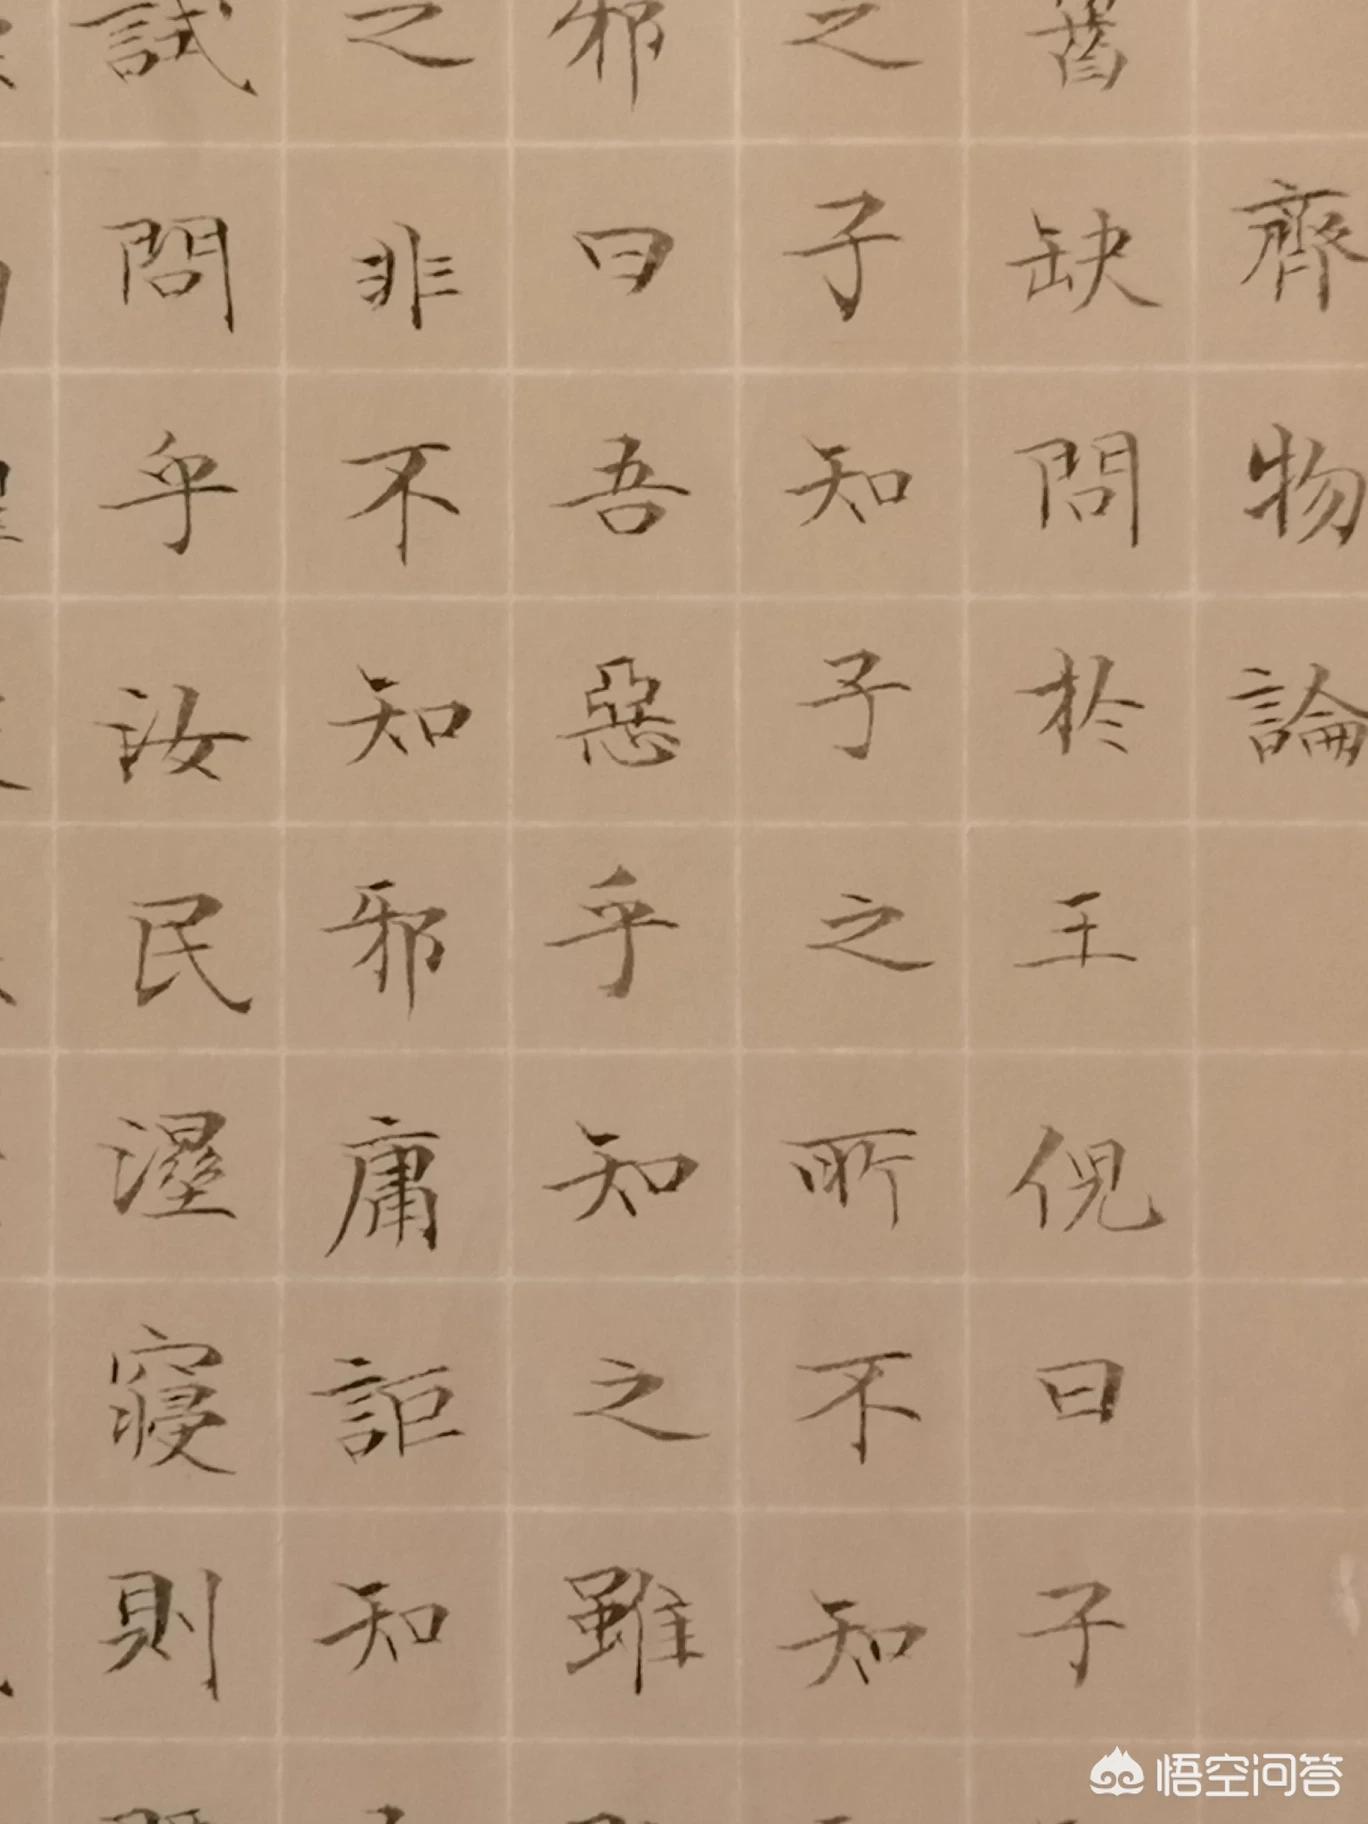 齊物論
齧缺問於王倪曰子
之子知子之所不知
邪曰吾惡乎知之雖
之非不知邪庸詎知
試問乎汝民濕寢則
悟空问答